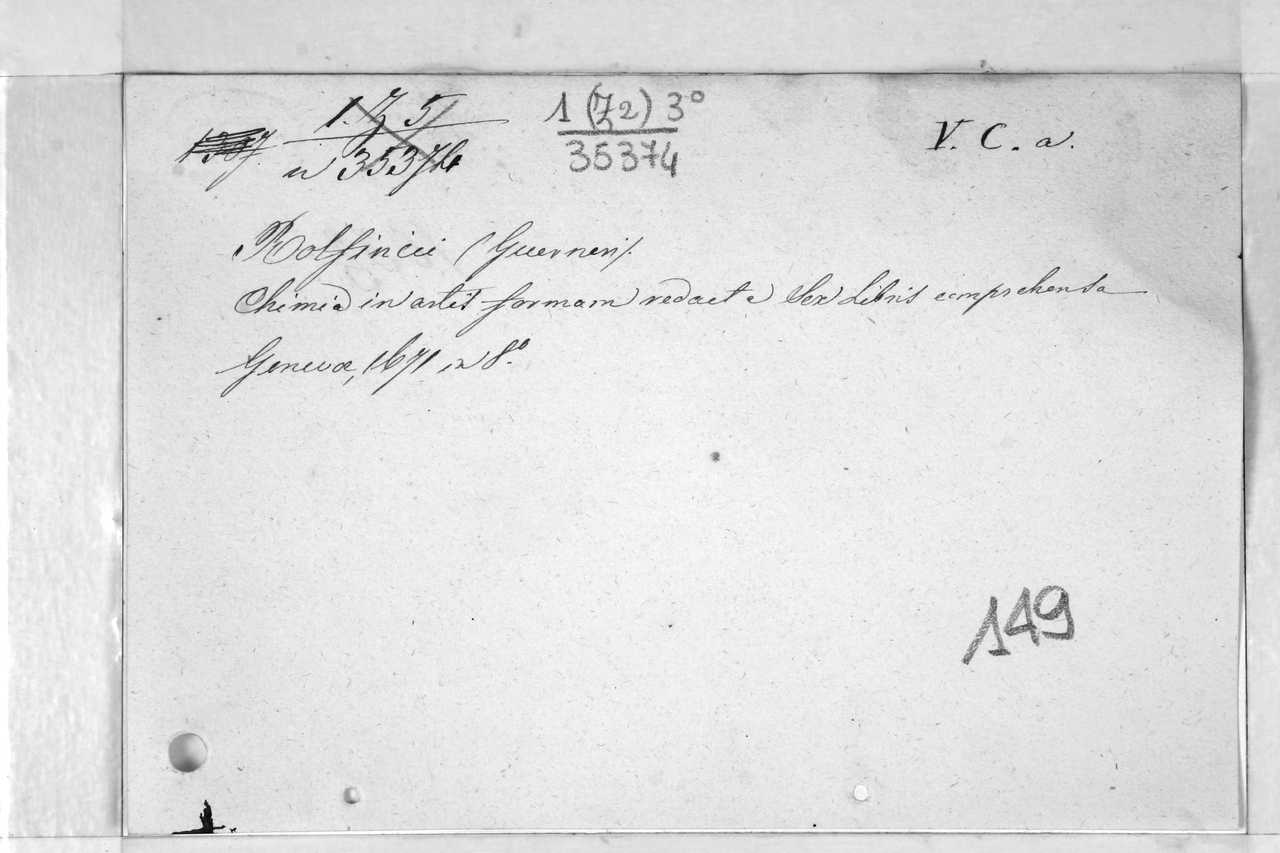 1. Z 5
n 35374
1 (Z2) 3°
35374
V. C. a.
Rolfincii (Guerneri).
Chimia in artis formam redacta Sex Libris comprehensa
Genevæ, 1671 in 8°
149